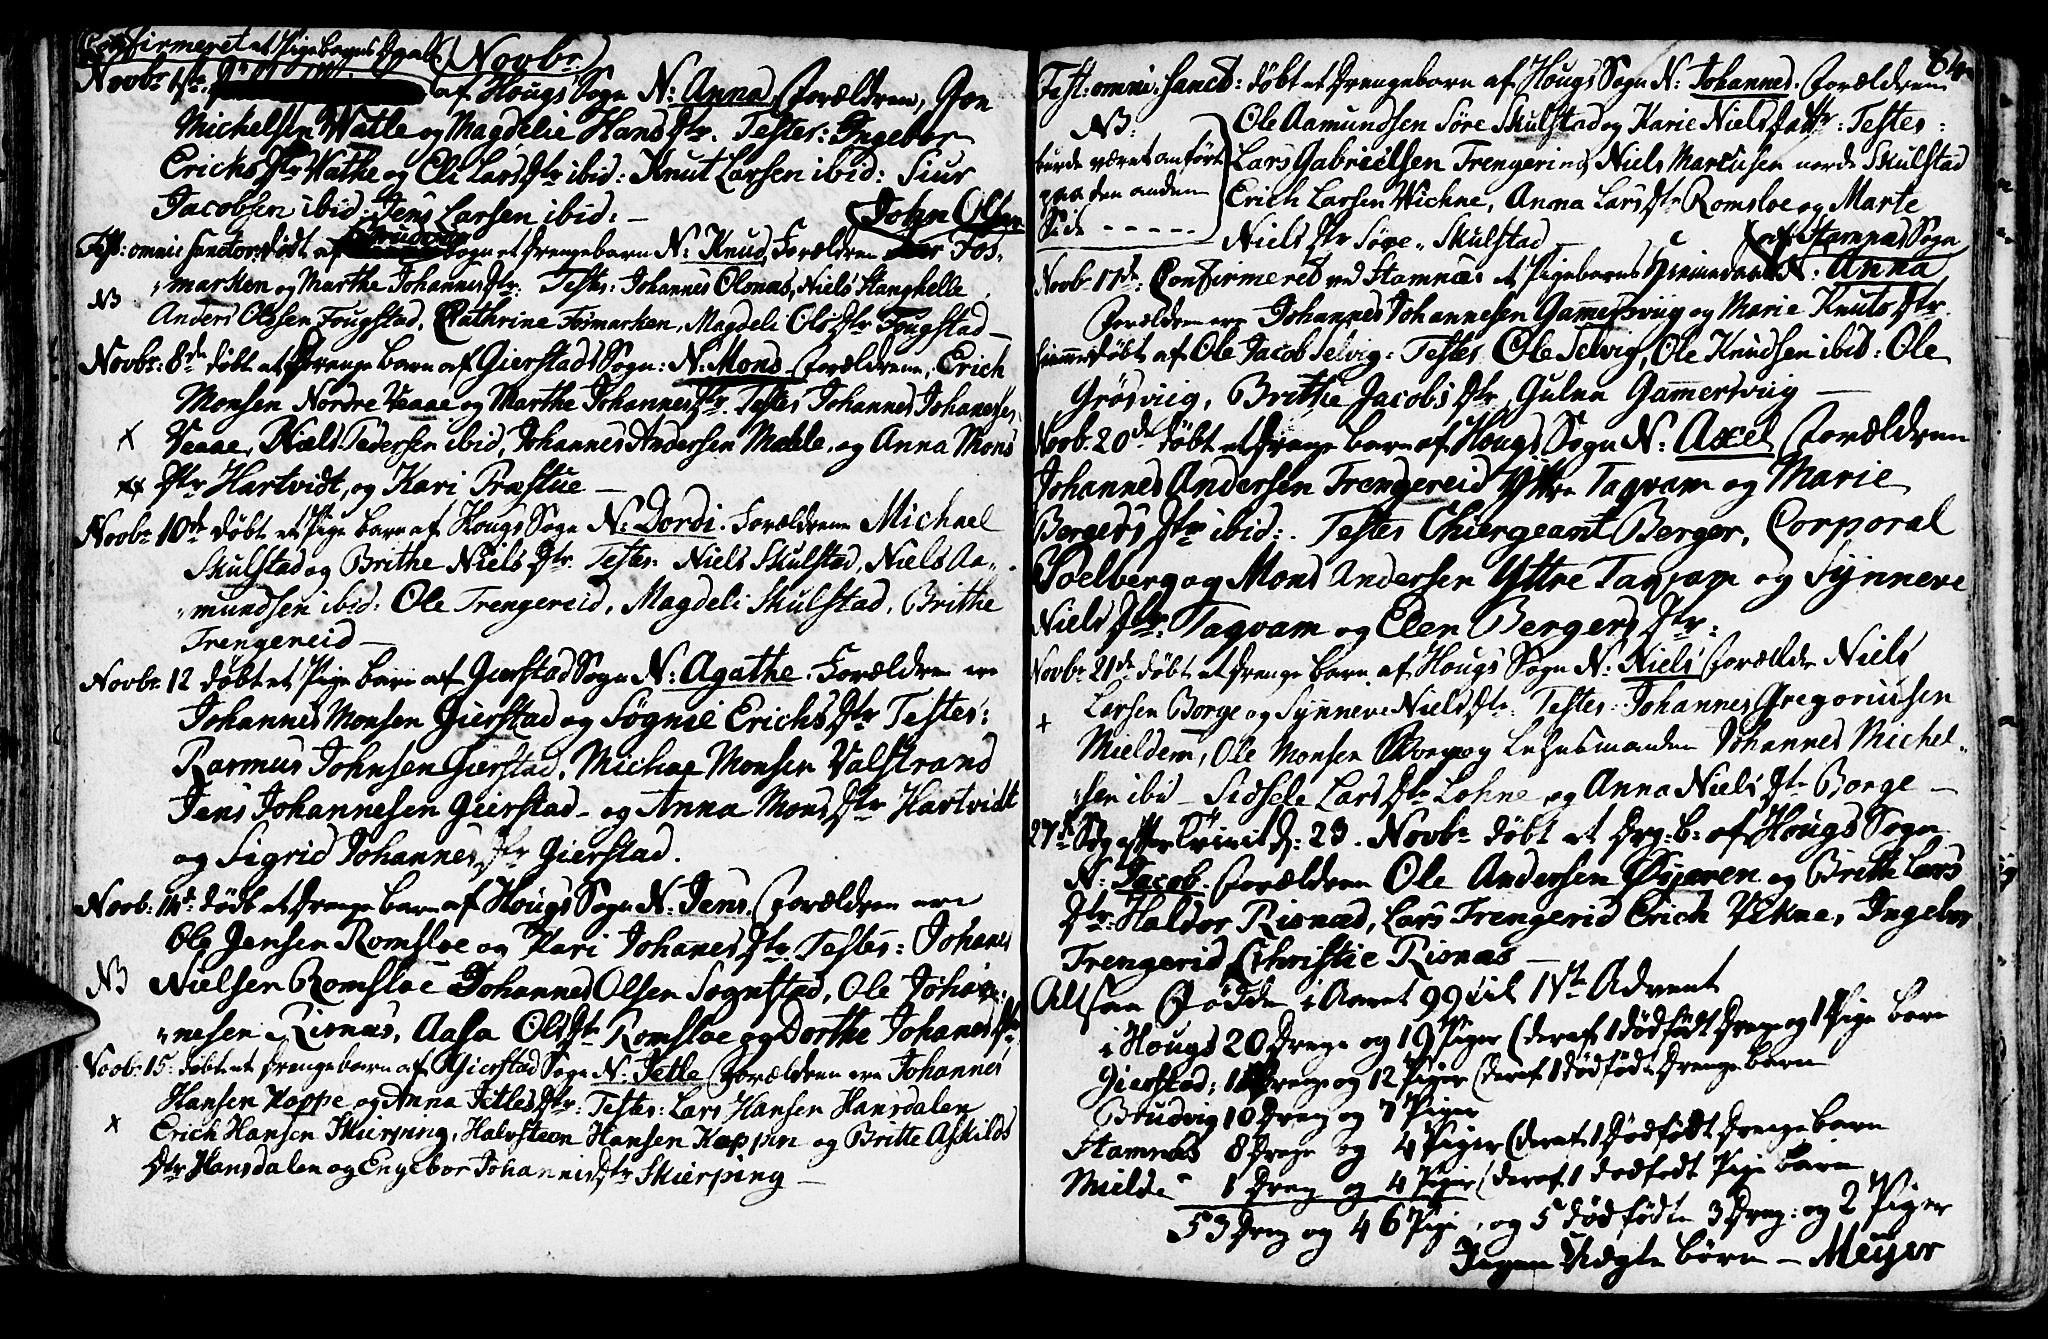 Confirmeret et Pigebarns Daab (Novbr.)
Novbr 1ste af Hougs Sogn N: Anna Forældrene, Jon
Michelsen Watle og Magdelie Hans Dtr. Testes: Ingebor
Erichs Dtr Wathe og Eli Lars Dtr ibid: Knut Larsen ibid: Siur
Jacobsen ibid: Jens Larsen ibid: —
John Olsen
Fest: omnis sanctor: døbt af Brudvig Sogn et Drengebarn N: Knud, Forældrene Fos-
marken og Marthe Johannes Dtr: Testes: Johannes Olsnas, Niels Stanghelle
NB
Anders Olsen Fougstad, Cathrine Fosmarken, Magdeli Ols Dtr Fougstad —
Novbr: 8de døbt et Drenge Barn af Gierstads Sogn: N: Mons Forældrene, Erich
Monsen Nordre Veaae og Marthe Johannes Dtr. Testes Johannes Johanesen
X Veaae, Niels Pedersen ibid, Johannes Andersen Mahle, og Anna Mons
Dtr Hartvidt, og Kari Præstue —
Novbr 10de døbt et Pige Barn af Hougs Sogn N: Dordi. Forældrene Michael
Skulstad og Brithe Niels Dtr. Testes. Niels Skulstad, Niels Aa-
mundsen ibid: Ole Trengereid, Magdeli Skulstad, Brithe
Trengereid —
Novbr. 12 døbt et Pige Barn af Gierstad Sogn N: Agathe. Forældrene ere
Johannes Monsen Gierstad og Søgnie Erichs Dtr Testes:
Rasmus Johnsen Gierstad, Michae Monsen Valstrand
Jens Johannesen Gierstad - og Anna Mons Dtr Hartvidt
og Sigrid Johannes Dtr Gierstad.
Novb: 14de: døbt et Drenge Barn af Hougs Sogn N: Jens. Forældrene ere
Ole Jensen Romsloe og Kari Johanes Dtr. Testes: Johanes
NB Nielsen Romsloe Johannes Olsen Sognstad, Ole Johan-
nesen Risnæs, Aasa Ols Dtr Romsloe og Dorthe Johanes Dtr
Novbr. 15: døbt et Drengebarn af Gierstad Sogn N: Jetle Forældrene ere Johannes
Hansen Kappe og Anna Jetles Dtr: Testes: Lars Hansen Hansdalen
X Erich Hansen Skierping, Halvsteen Hansen Kappen og Britte Askilds
Dtr Hansdalen og Engebor Johannis Dtr Skierping —
84
Fest: omni: sanct: døbt et Drengebarn af Hougs Sogn N: Johannes. Forældrene
NB: Ole Aamundsen Søre Skulstad og Karie Niels Datter: Testes:
burde været anført Lars Gabrielsen Trengerind, Niels Marcusen nordr Skulstad
paa den anden Erich Larsen Wichne, Anna Lars Dtr Romsloe og Marte
Side - - - - - Niels Dtr Søre Skulstad
(af Stamnæs Sogn
Novbr 17de: Confirmered ved Stamnæs et Pigebarns Hiemmedaab N: Anna
Forældrene ere Johannes Johannesen Gamersviig og Marie Knuts Dtr.
hiemmedøbt af Ole Jacob Selvig: Testes. Ole Selvig, Ole Knudsen ibid: Ole
Grøsviig, Brithe Jacobs Dtr, Gulua Gamersviig —
Novb. 20de døbt et Drenge Barn af Hougs Sogn N: Axel Forældrene
Johannes Andersen Trengereid Yttre Tagvam og Marie
Bergers Dtr ibid: Testes Chiergeant Berger, Corporal
Soelberg og Mons Andersen Yttre Tagvam og Synneve
Niels Dtr: Tagvam og Elen Bergers Dtr:
Novbr 21de døbt et Drenge Barn af Hougs Sogn N: Niels Forældre Niels
Larsen Borge og Synneve Niels Dtr: Testes: Johannes Gregoriusen
+ Mieldem, Ole Monsen Borge og Lehnsmanden Johannes Michel-
sen ibid - Sidsele Lars Dtr Lohne og Anna Niels Dtr Borge —
27de Søg: efter Trinit D: 23. Novbr døbt et Drg: B: af Hougs Sogn
N: Jacob. Forældrene Ole Andersen Øyaren og Britte Lars
Dtr: Haldor Risnæs, Lars Trengerid Erich Vikne, Ingebor
Trengerid Christie Risnæs —
Altsaa Fødde i Aaret 99 til 1ste Advent
i Hougs 20 Drenge og 19 Piger (deraf 1 dødfødt Drenge og 1 Pige barn
Gierstad: Drenge og 12 Piger (deraf 1 dødfødt Drenge barn
Brudvig 10 Dreng og 7 Piger
Stamnæs 8 Drenge og 4 Piger (deraf 1 Dødfødt Drengebarn
Mielde 1 Dreng og 4 Piger (deraf 1 dødfødt Pige barn
53 Dreng og 46 Pige, og 5 dødfødte 3 Dreng: og 2 Piger
Ingen Uægte børn — Meyer